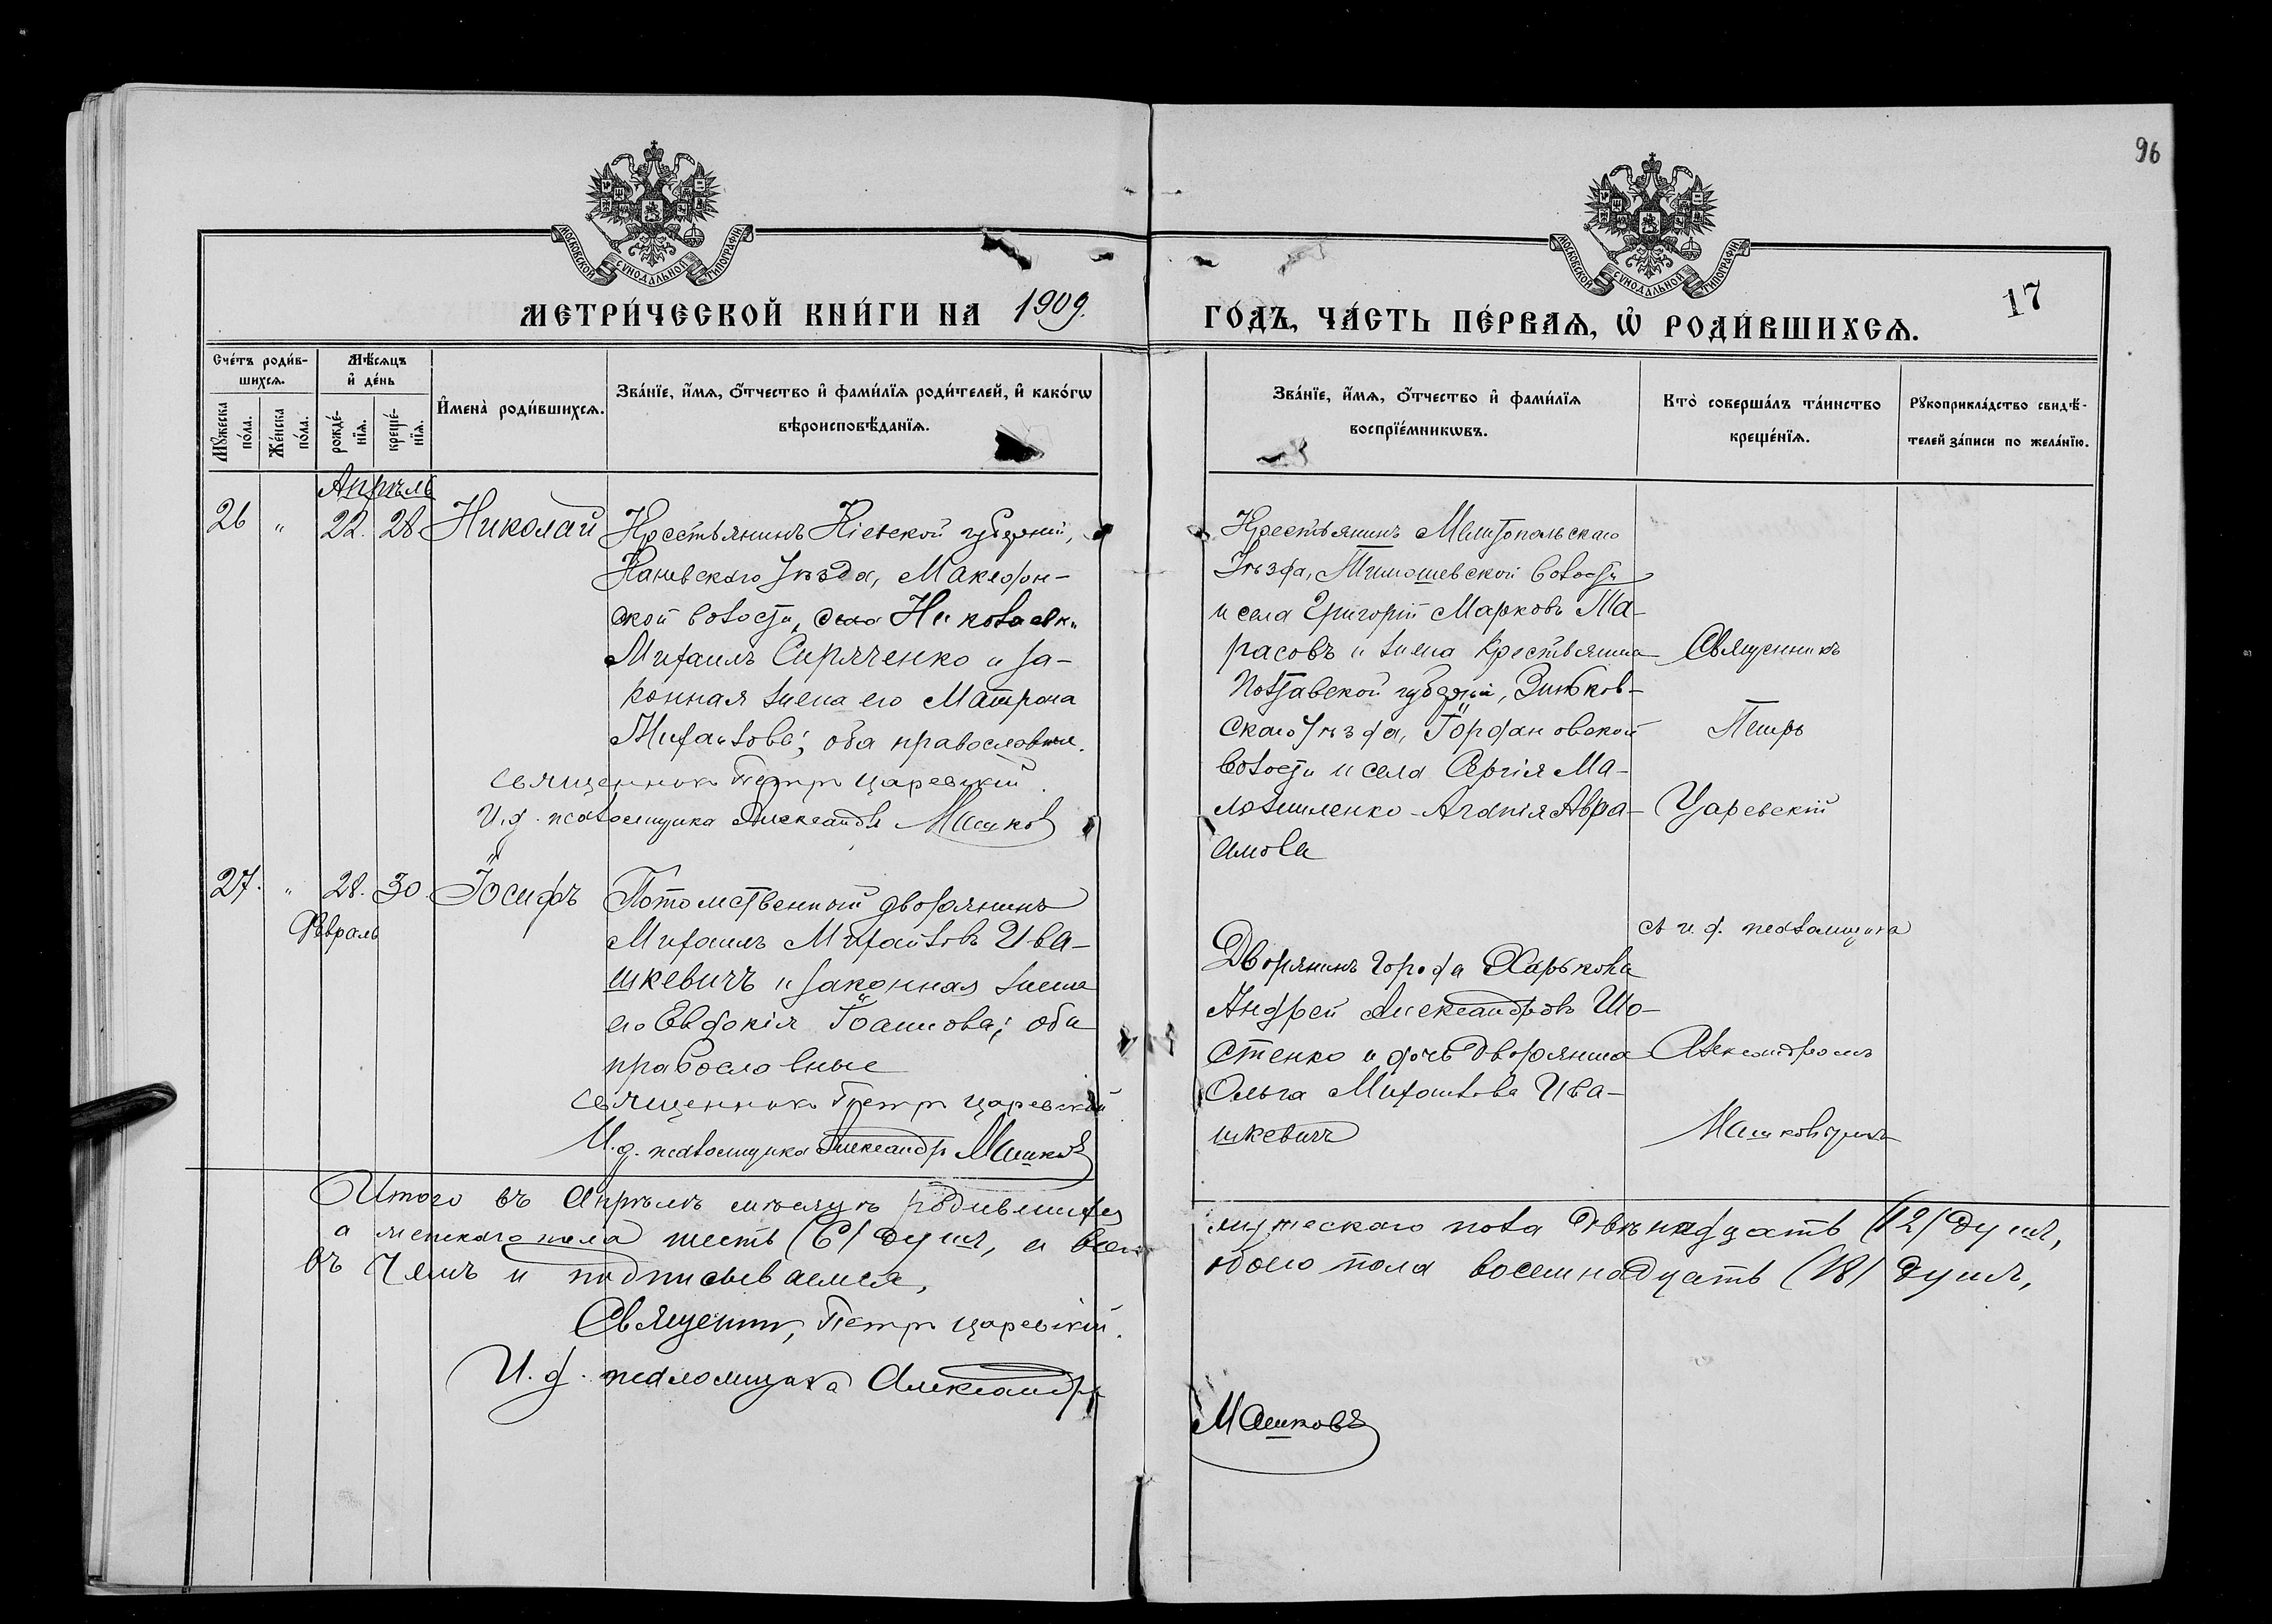 96
МОСКОВСКОЙ СѴНОДАЛЬНОЙ ТИПОГРАФІИ
МОСКОВСКОЙ СѴНОДАЛЬНОЙ ТИПОГРАФІИ
МЕТРИ́ЧЕСКОЙ КНИ́ГИ НА 1909.
ГО́ДЪ, ЧА́СТЬ ПЕ́РВАѦ, Ѡ҆ РОДИ́ВШИХСѦ.
17
Сче́тъ роди́в-
шихсѧ.
Мꙋ́жеска по́ла.
Же́нска по́ла.
Мѣ́сѧцъ
и҆ де́нь
рожде́-
нїѧ.
креще́-
нїѧ.
И҆мена̀ роди́вшихсѧ.
Зва́нїе, и҆́мѧ, ѻ҆́тчество и҆ фами́лїѧ роди́телей, и҆ како́гѡ
вѣроисповѣ́данїѧ.
Зва́нїе, и҆́мѧ, ѻ҆́тчество и҆ фами́лїѧ
воспрїе́мникѡвъ.
Кто̀ соверша́лъ та́инство
креще́нїѧ.
Рꙋкоприкла́дство свидѣ́-
телей за́писи по жела́нїю.
Апрѣль
26 " 22. 28 Николай
Крестьянинъ Кіевской губерніи,
Каневскаго уѣзда, Македон-
ской волости, села Николаевки
Михаилъ Сиряченко и за-
конная жена его Матрона
Михаилова; оба православные.
Священникъ Петръ Царевскій.
И.д. псаломщика Александръ Машковъ
Крестьянинъ Мелитопольскаго
уѣзда, Тимошевской волости
и села Григорій Марковъ Та-
расовъ и жена крестьянина
Полтавской губерніи, Зиньков-
скаго уѣзда, Іордановской
волости и села Сергія Ма-
ложиленко - Агапія Авра-
амова
Священникъ
Петръ
Царевскій
27. " 28. 30 Іосифъ
Февраль
Потомственный дворянинъ
Михаилъ Михаиловъ Ива-
шкевичъ и законная жена
его Евдокія Іоаннова; оба
православные
Священникъ Петръ Царевскій
И.д. псаломщика Александръ Машковъ
Дворянинъ города Харькова
Андрей Александровъ Шо-
стенко и дочь дворянина
Ольга Михаилова Ива-
шкевичъ
съ и.д. псаломщика
Александромъ
Машковымъ
Итого въ Апрѣлѣ мѣсяцѣ родившихся мужескаго пола двѣнадцать (12) душъ,
а женскаго пола шесть (6) душъ, а всего обоего пола восемнадцать (18) душъ,
въ чемъ и подписываемся,
Священник, Петръ Царевскій.
И.д. псаломщика Александръ Машковъ